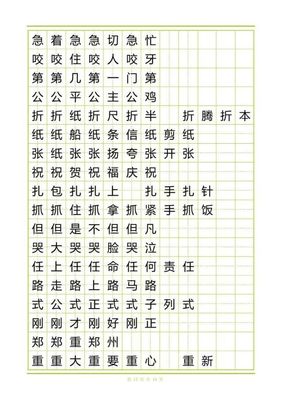 急着急急切急忙
咬咬住咬人咬牙
第第几第一门第
公公平公主公鸡
折折纸折尺折半 折腾折本
纸纸船纸条信纸剪纸
张张纸张扬夸张开张
祝祝贺祝福庆祝
扎扎包扎扎上 扎手扎针
抓抓住抓拿抓紧手抓饭
但但是不但但凡
哭哭大哭哭脸哭泣
任上任任命任何责任
路走路上路马路
式公式正式式子列式
刚刚才刚好刚正
郑郑重郑州
重重大重要重心 重新